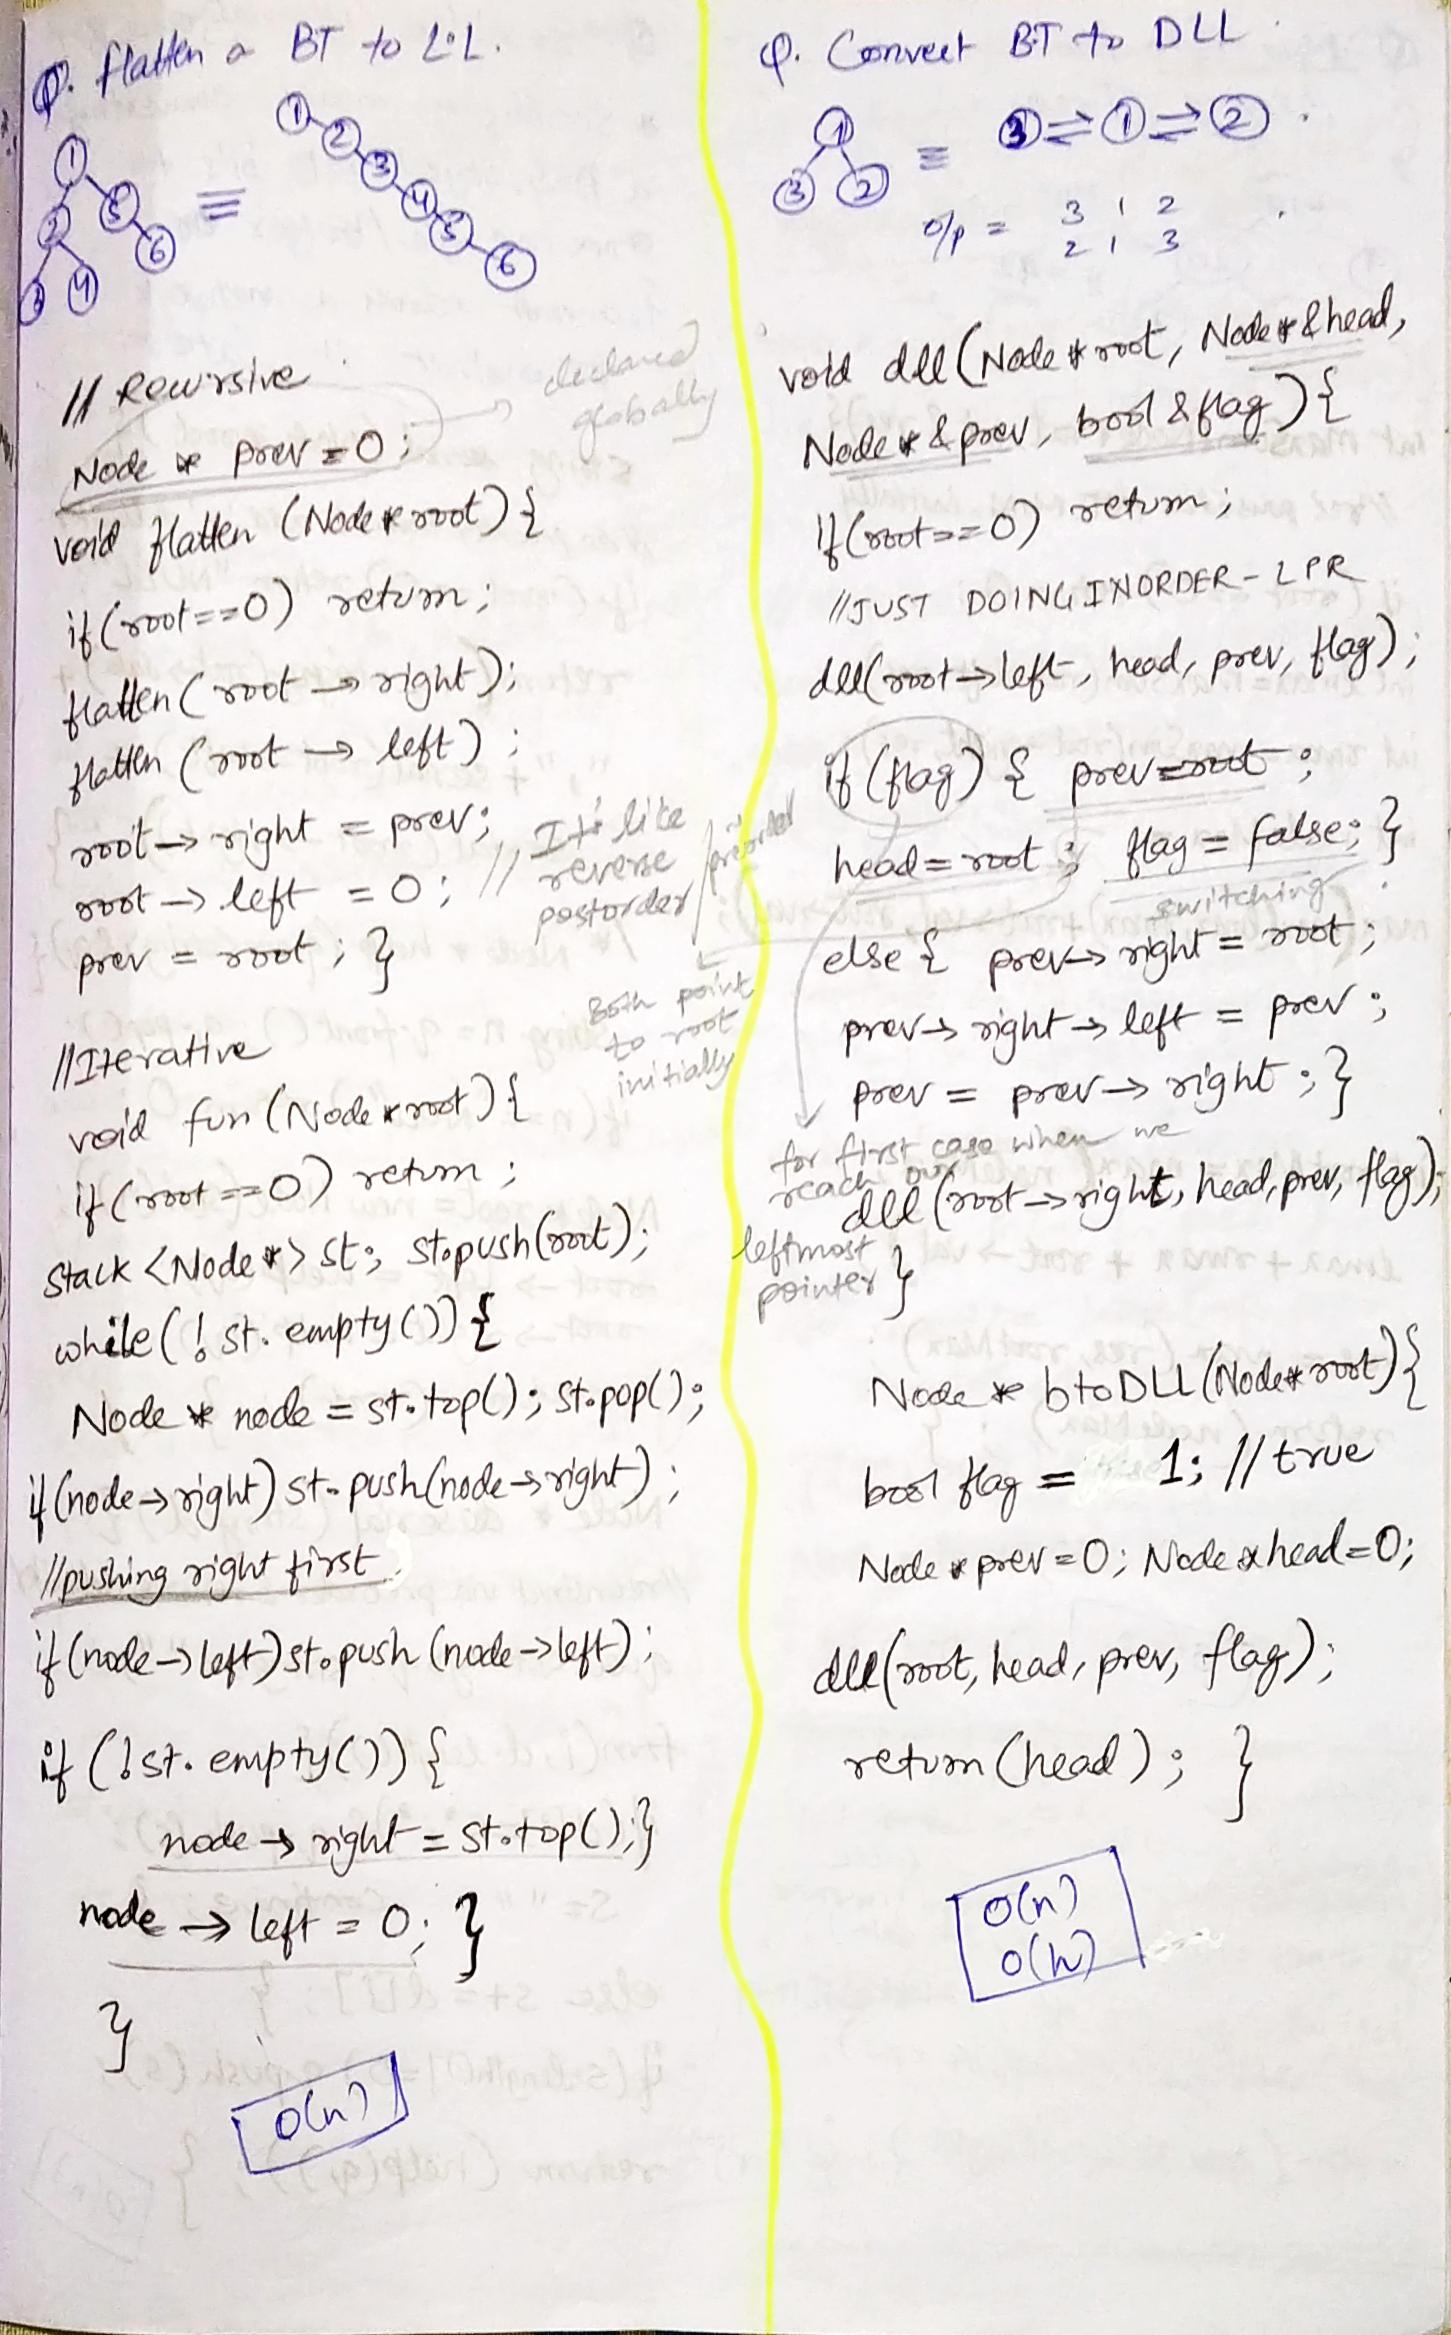 Q. Flatten a BT to L.L.
1 2 5 3 4 6 ≡ 1 2 3 4 5 6
// Recursive
Node * prev = 0; → declared globally
void flatten (Node * root) {
if (root==0) return;
flatten (root → right);
flatten (root → left);
root → right = prev;
root → left = 0; // It's like reverse postorder / preorder
prev = root; }
//Iterative
void fun (Node * root) {
if (root ==0) return;
stack <Node *> st; st.push(root);
while (! st. empty()) {
Node * node = st.top(); st.pop();
if (node → right) st. push(node → right);
//pushing right first
if (node → left) st. push (node → left);
if (! st. empty()) {
node → right = st.top(); }
node → left = 0; }
}
O(n)
Q. Convert BT to DLL
1 3 2 ≡ 3 ⇌ 1 ⇌ 2
o/p = 3 1 2
2 1 3
void dll (Node * root, Node * &head,
Node * & prev, bool & flag) {
if (root==0) return;
//JUST DOING INORDER - LPR
dll(root → left, head, prev, flag);
if (flag) { prev=root;
head = root; flag = false; }
switching
Both point
to root
initially
else { prev → right = root;
prev → right → left = prev;
prev = prev → right; }
for first case when we
reach our
leftmost
pointer
dll (root → right, head, prev, flag);
}
Node * btoDLL (Node * root) {
bool flag = 1; // true
Node * prev = 0; Node * head = 0;
dll(root, head, prev, flag);
return (head); }
O(n)
O(h)